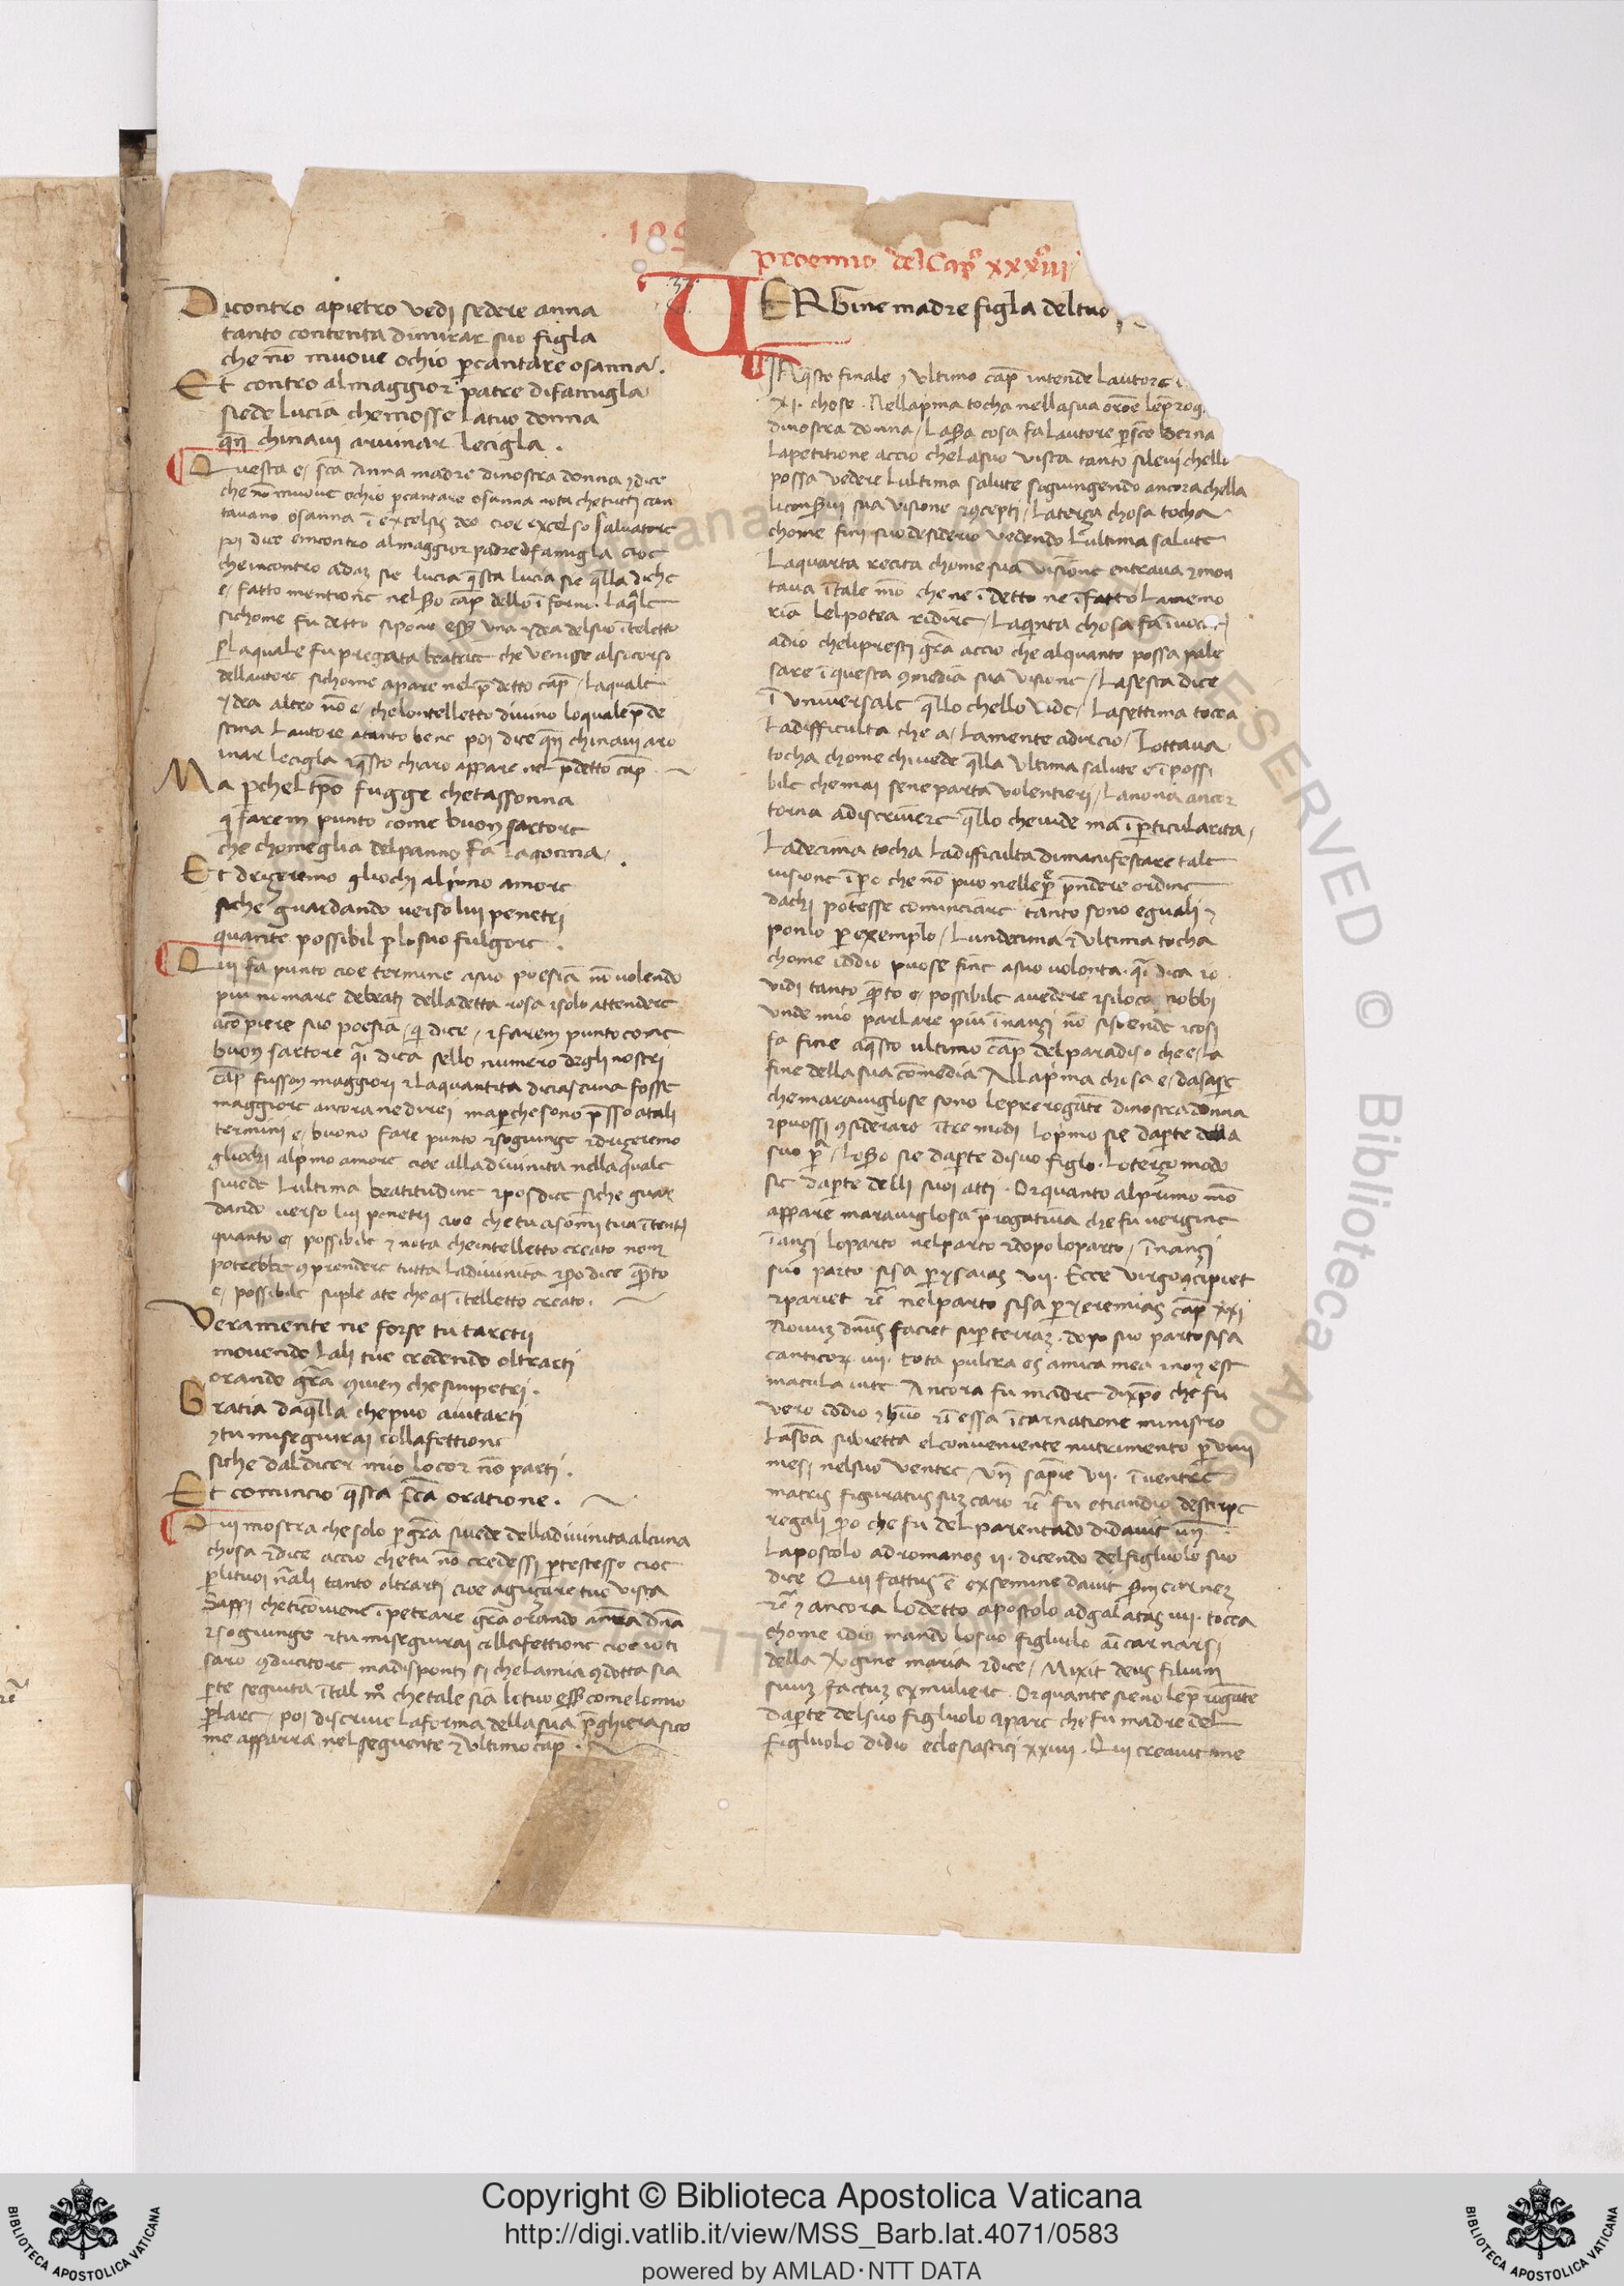 189
Dicontro apietro vedi sedere anna
tanto contenta dimirar suo figla
che nō muove ochio ꝑcantare osanna.
Et contro almaggior patre difamigla
siede lucia chemosse latuo donna
qn̄ chinavi aruinar lecigla.
Questa e, sc̄a Anna madre dinostra donna ⁊dice
che nō muove ochio ꝑcantare osanna nota chetutti can
tavano osanna ī excelsis deo cioe excelso salvatore
poi dice emcontro almaggior padre d famigla cioe
che incontro adaꝫ sie lucia q̄sta lucia sie q̄lla diche
e, fatto mentione nel cap̄ dello īferno. laq̄le
sichome fu detto sipone una ydea delsuo ītelletto
ꝑlaquale fu pregata beatrice che venisse alsocorso
dellautore sichome apare nel p̄detto cap̄, laquale
ydea altro nō e, chelontelletto divino loquale p̄de
stina lautore atanto bene poi dice qn̄ chinavi aro
inar lecigla ⁊q̄sto chiaro appare nel p̄detto cap̄.
Ma ꝑchel tp̄o fugge chetassonna
q farem punto come buon sartore
che chomeglia delpanno fa lagonna.
Et drigeremo gliochi alprimo amore
siche guardando verso lui penetri
quante possibil ꝑlosuo fulgore.
Qui fa punto cioe termine asuo poesia nō volendo
piu nomare debeati delladetta rosa ⁊solo attendere
acōpiere suo poesia, q dice, ⁊farem punto come
buon sartore q̄i dica sello numero degli nostri
cap̄ fusson maggiori ⁊laquantita diciascuna fosse
maggiore ancora nedirei maꝑche sono p̄sso atali
termini e, buono fare punto ⁊sogiunge ⁊drigeremo
gliochi alp̄mo amore cioe alladivinita nellaquale
sivede lultima beatitudine ⁊poi dice siche guar
dando verso lui penetri cioe che tu asomi tua ītenti
quanto e, possibile ⁊ nota cheintelletto creato non
potrebbe ꝯprendere tutta ladivinita ⁊ꝑo dice q̄nto
e, possibile suple ate che as ītelletto creato.
Veramente ne forse tu taretri
movendo lali tue credendo oltrarti
orando gr̄a ꝯvien che simpetri.
Gratia daq̄lla chepuo aiutarti
⁊tu miseguirai collafettione
siche daldicer mio locor nō parti.
Et comincio q̄sta sc̄a oratione.
Qui mostra chesolo ꝑgr̄a sivede delladivinita alcuna
chosa ⁊dice accio chetu nō credessi ꝑtestesso cioe
ꝑlituoi n̄ali tanto oltrarti cioe aguçare tue vista
Sappi cheticōviene īpetrare gr̄a orando
⁊sogiunge ⁊tu miseguirai collafettione cioe io ti
saro ꝯducitore madisponti si chelamia ꝯdotta sia
ꝑte seguita ītal mō chetale sia lotuo come lomio
ꝑlare, poi discrive laforma dellasua p̄ghiera sico
me apparra nelseguente ⁊ultimo cap̄.
proemio del Capº xxxºiii
VERGine madre figla deltuo
IN q̄sto finale ⁊ ultimo cap̄ intende lautore
XI. chose. Nellap̄ma tocha nellasua orōe lep̄rog
dinostra donna, la cosa fa lautore ꝑ sc̄o berna
lapetitione accio chelasuo vista tanto silevi chelli
possa vedere lultima salute sogiungendo ancora chella
sua visione ⁊ꝯcepti, laterza chosa tocha
chome finj suo desiderio vedendo lultima salute
laquarta recita chome sua visione entrava ⁊mon
tava ītale mō che ne ī detto ne īfatto lamemo
ria lelpotea ridire, laq̄nta chosa fa īvoca
adio chelipresti gr̄a accio che alquanto possa pale
sare īquesta ꝯmedia sua visione, lasesta dice
ī universale q̄llo chello vide, lasettima tocca
ladifficulta che a, lamente adircio, lottava
tocha chome chivede q̄lla ultima salute e īpossi
bile chemai sene parta volentieri, lanona ancor
torna adiscrivere q̄llo chevide ma ī ꝑticularita,
ladecima tocha ladifficulta dimanifestare tale
visione īꝑo che nō puo nelle prendere ordine
dachi potesse cominciare tanto sono eguali ⁊
ponlo ꝑ exemplo, lundecima ⁊ultima tocha
chome iddio puose fine asuo volonta. q̄i dica io
vidi tanto q̄nto e, possibile avedere ⁊siloco nobbi
unde mio parlare piu īnanzi nō sistende ⁊cosi
fa fine aq̄sto ultimo cap̄ delparadiso che e, la
fine dellasua comedia Allap̄ma chosa e, dasape
chemaraviglose sono leprerogātē dinostra donna
⁊puossi ꝯsiderare ītre modi lop̄mo sie daꝑte della
suo pr̄, lo sie daꝑte disuo figlo. loterço modo
sie daꝑte delli suoi atti. Orquanto alprimo mō
appare maraviglosa p̄rogativa che fu vergine
īanzi loparto nelparto ⁊dopo loparto, īnanzi
suo parto sisa ꝑ ysaias vii. Ecce virgo ꝯcipiet
⁊pariet ⁊c̄ nelparto sisa ꝑ yeremias cap̄ xxi
Novuꝫ dn̄us faciet suꝑ terraꝫ. dopo suo parto sisa
canticoꝝ iiii. tota pulcra es amica mea ⁊non est
macula inte Ancora fu madre dixp̄o che fu
vero iddio ⁊ huō ⁊ī essa īcarnatione ministro
subietta elconveniente nutrimento ꝑ viiii
mesi nelsuo ventre, Un̄ sapie vii. īventre
matris figuratus suꝫ caro ⁊c̄ fu etiandio destirpe
regali ꝑo che fu del parentado didavit un̄
lapostolo adromanos ii. dicendo delfigluolo suo
dice Qui fattus ē exsemine davit carneꝫ
⁊c̄ ⁊ ancora lodetto apostolo adgalatas iiii. tocca
chome idio mando losuo figluolo aī carnarsi
della v̄gine maria ⁊dice, Mixit deus filium
suuꝫ factuꝫ exmuliere. Orquante sieno lep̄rogātē
daꝑte delsuo figluolo apare che fu madre del
figluolo didio eclesiastici xxiiii. Qui creavit me
Copyright © Biblioteca Apostolica Vaticana
http://digi.vatlib.it/view/MSS_Barb.lat.4071/0583
powered by AMLAD·NTT DATA
BIBLIOTECA APOSTOLICA VATICANA
BIBLIOTECA APOSTOLICA VATICANA